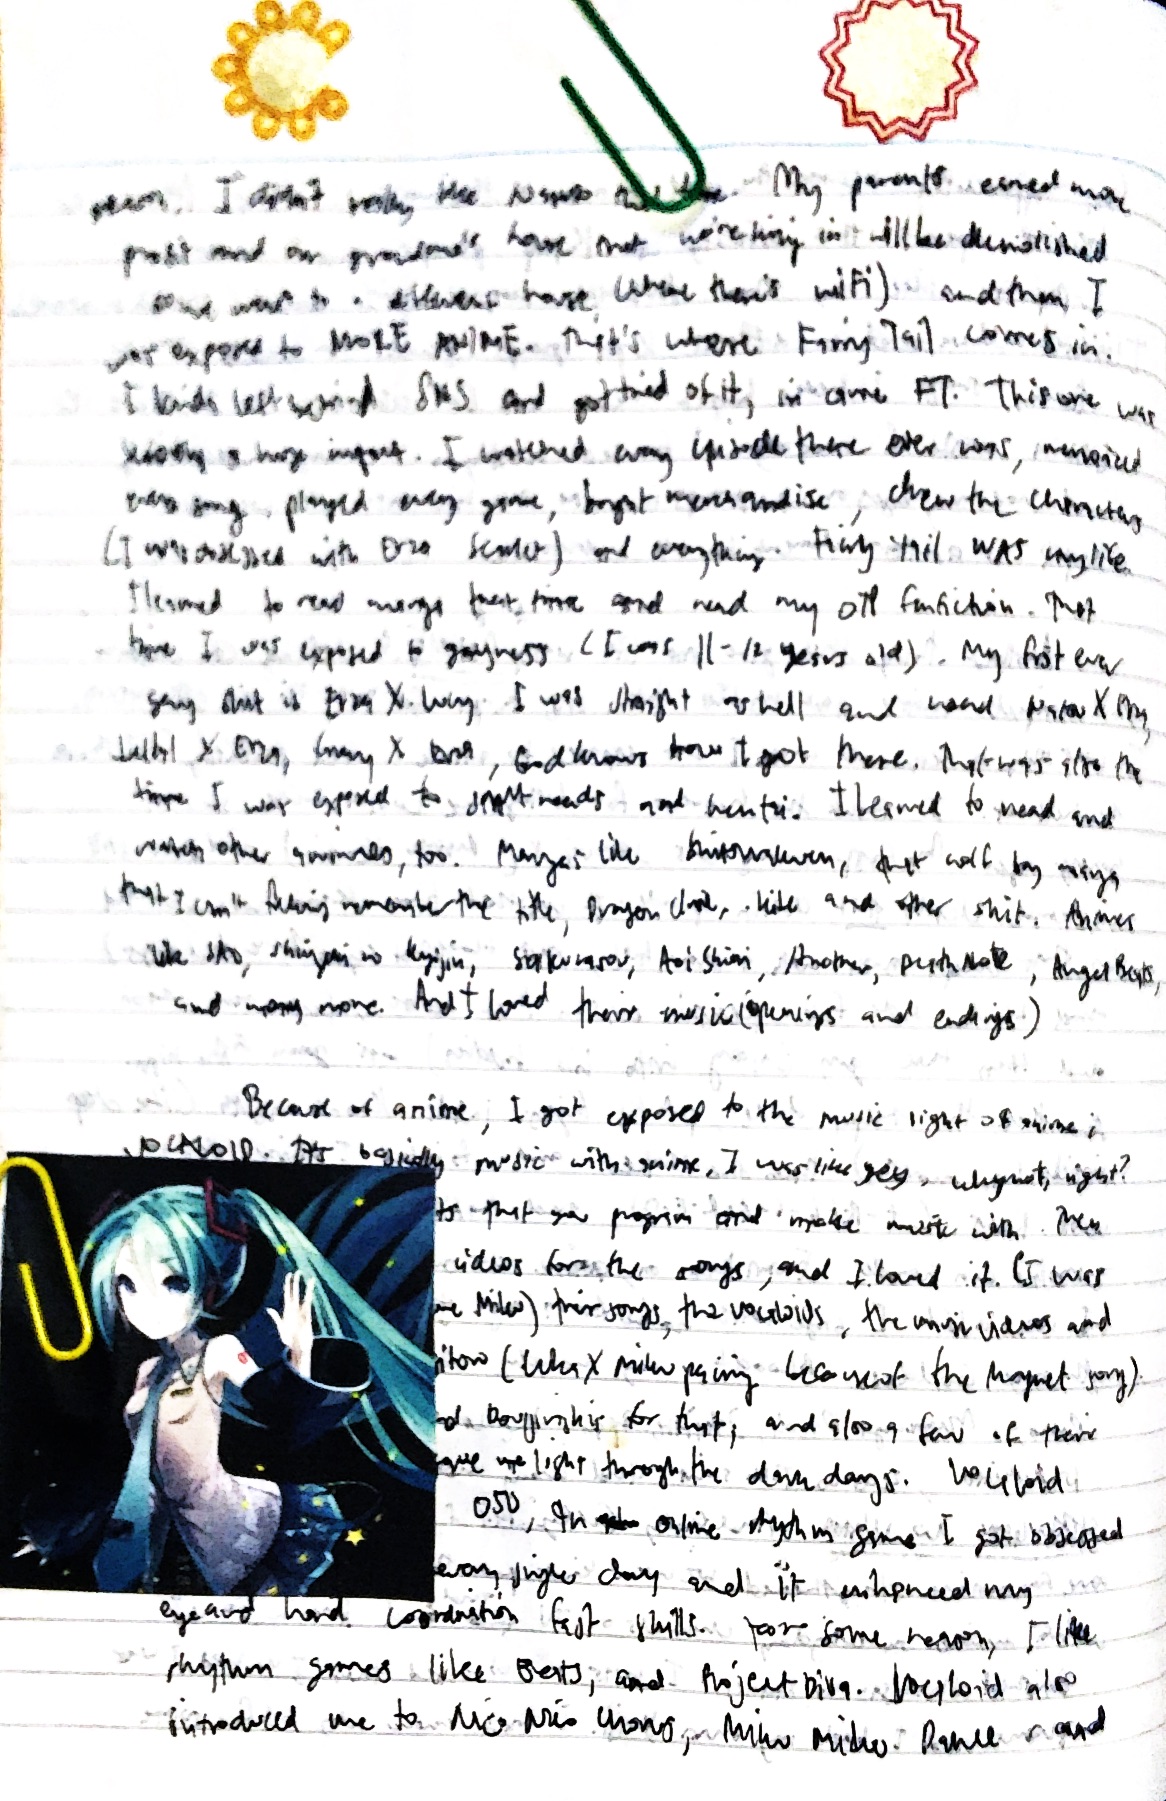 reason. I didn't really like Naruto that time. My parents earned more
profit and our grandma's house that we're living in will be demolished
so we went to a different house (where there's wifi) and then I
was exposed to MORE ANIME. That's where Fairy Tail comes in.
I kinda left behind and got tired of it, in came FT. This one was
a huge impact. I watched every episode there ever was, memorized
every song, played every game, bought merchandise, drew the characters
(I was obsessed with Erza Scarlet) and everything. Fairy Tail WAS my life.
I learned to read manga that time and read my OTP fanfiction. That
time I was exposed to gayness (I was 11-12 years old). My first ever
gay shit is Erza X Lucy. I was straight as hell and read
Jellal X Erza, Gray X Erza, God knows how I got there. That was also the
time I was exposed to smut reads and hentai. I learned to read and
watch other animes, too. Mangas like that wolf boy manga
that I can't fucking remember the title, and other shit. Animes
like SAO, Shingeki no Kyojin, Another, Death Note, Angel Beats,
and many more. And I loved their music (openings and endings)
Because of anime, I got exposed to the music light of anime;
VOCALOID. It's basically music with anime, I was like yes, why not, right?
ts that you program and make music with. Then
videos for the songs, and I loved it. (I was
ne Miku) their songs, the vocaloids, the music videos and
(Luka X Miku pairing because of the Magnet song)
nd Doujinshis for that, and also a few of their
gave me light through the dark days. Vocaloid
OSU, an online rhythm game I got obsessed
every single day and it enhanced my
eye and hand coordination fast skills. For some reason, I like
rhythm games like Beats, and Project Diva. Vocaloid also
introduced me to Nico Nico Chorus, Miku Miku Dance and